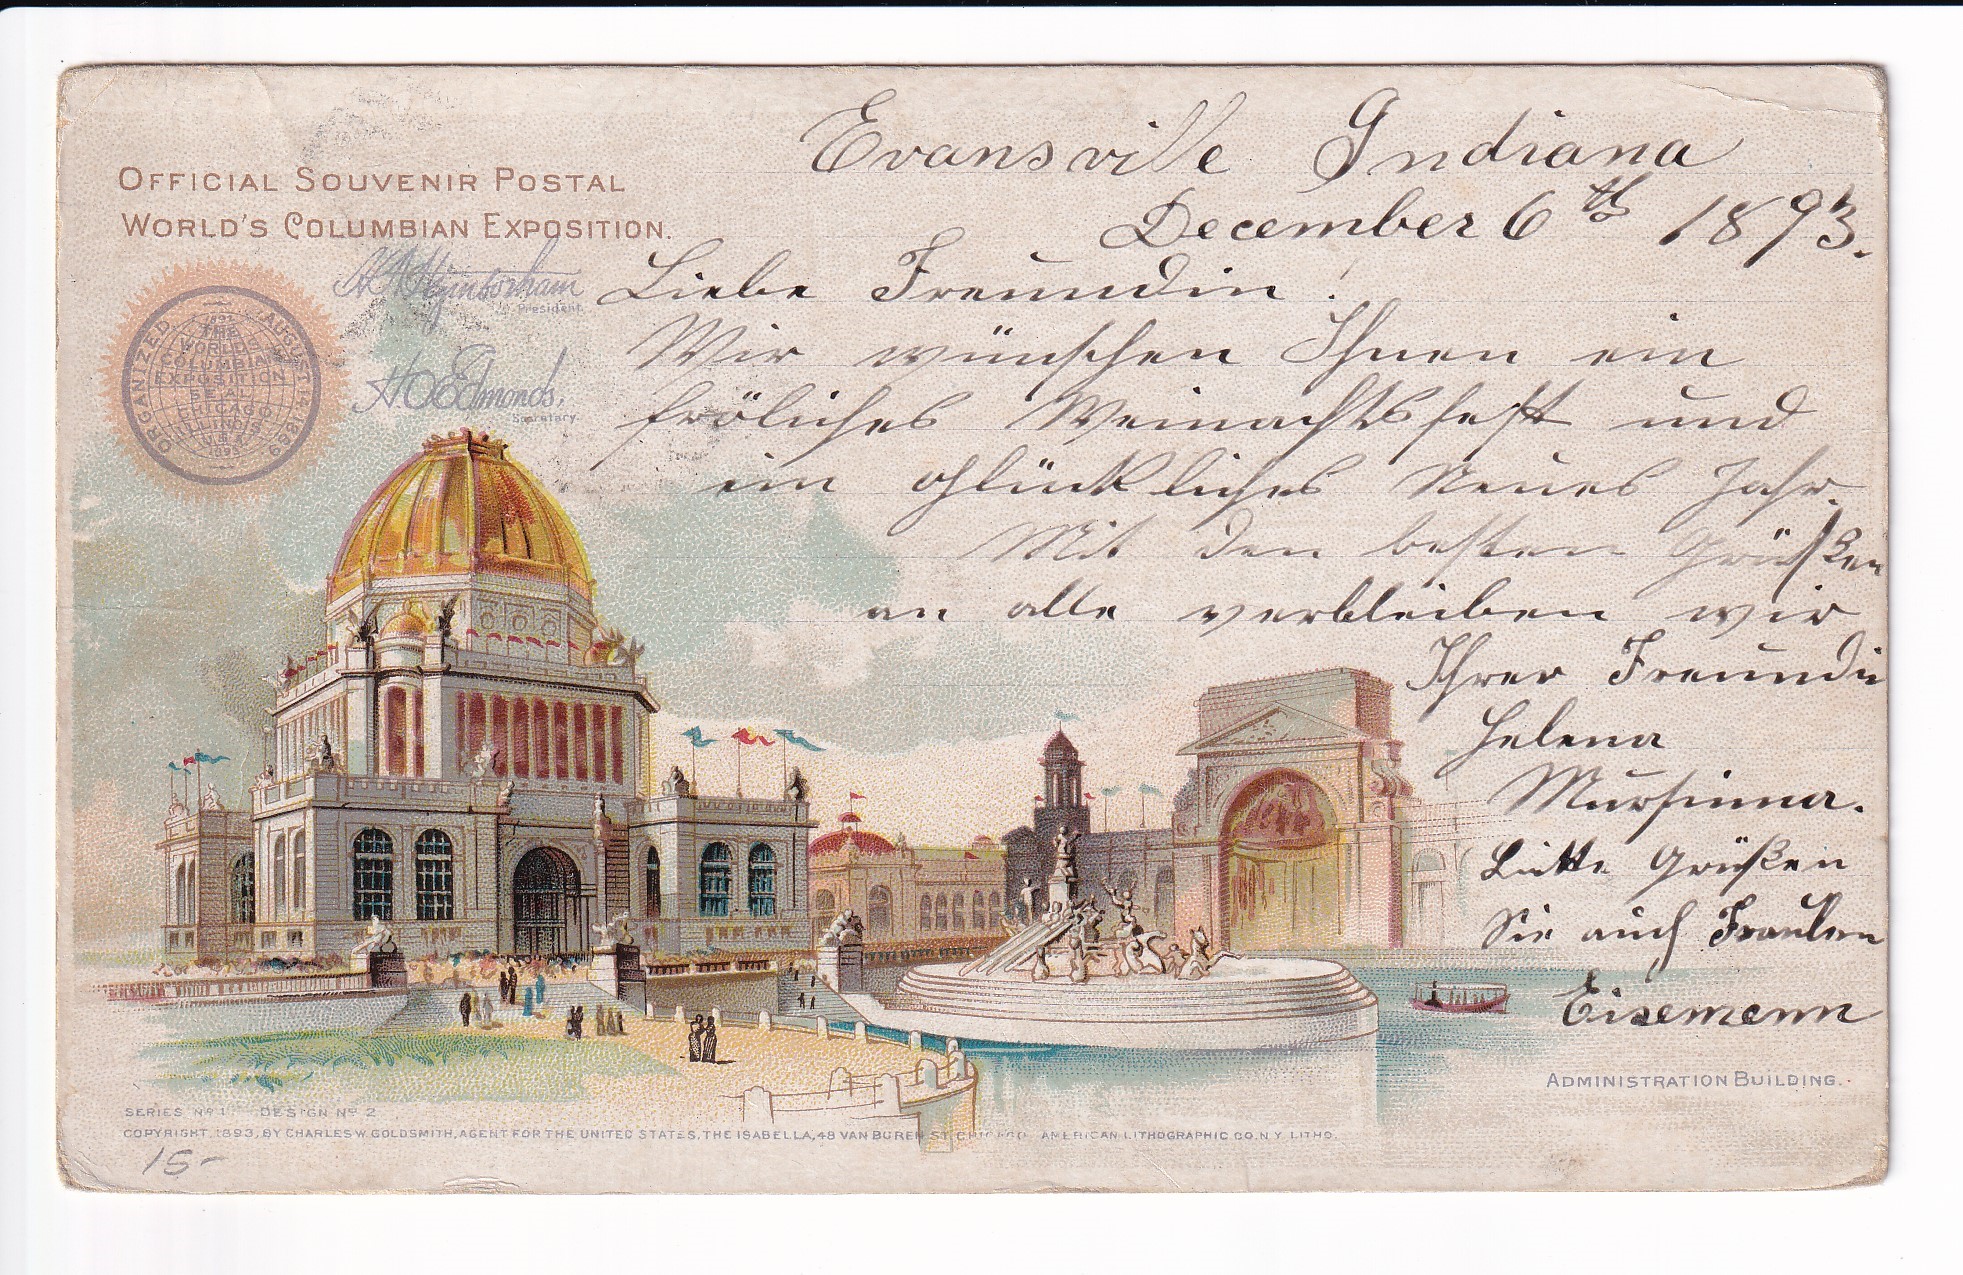 Evansville Indiana
December 6th 1893.
OFFICIAL SOUVENIR POSTAL
WORLD'S COLUMBIAN EXPOSITION.
Liebe Freundin!
Wir wünschen Ihnen ein
fröliches Weinachtsfest und
ein glückliches Neues Jahr.
Mit den besten Grüßen
an alle verbleiben wir
Ihrer Freundin
Helena
Mursinna.
Bitte Grüßen
Sie auch Fraulen
Eisemenn
President.
H O Edmonds,
Secretary.
ORGANIZED AUGUST 14, 1889
1892
THE
WORLDS
COLUMBIAN
EXPOSITION
SEAL
CHICAGO
ILLINOIS
U.S.A.
1893
ADMINISTRATION BUILDING.
SERIES Nº 1 DESIGN Nº 2
COPYRIGHT, 1893, BY CHARLES W. GOLDSMITH, AGENT FOR THE UNITED STATES, THE ISABELLA, 48 VAN BUREN ST, CHICAGO AMERICAN LITHOGRAPHIC CO. N.Y. LITHO.
15-